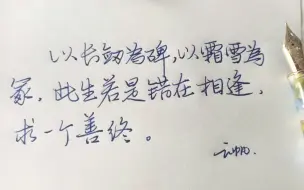 以长剑为碑,以霜雪為
冢,此生若是错在相逢,
求一个善终。
云帆.